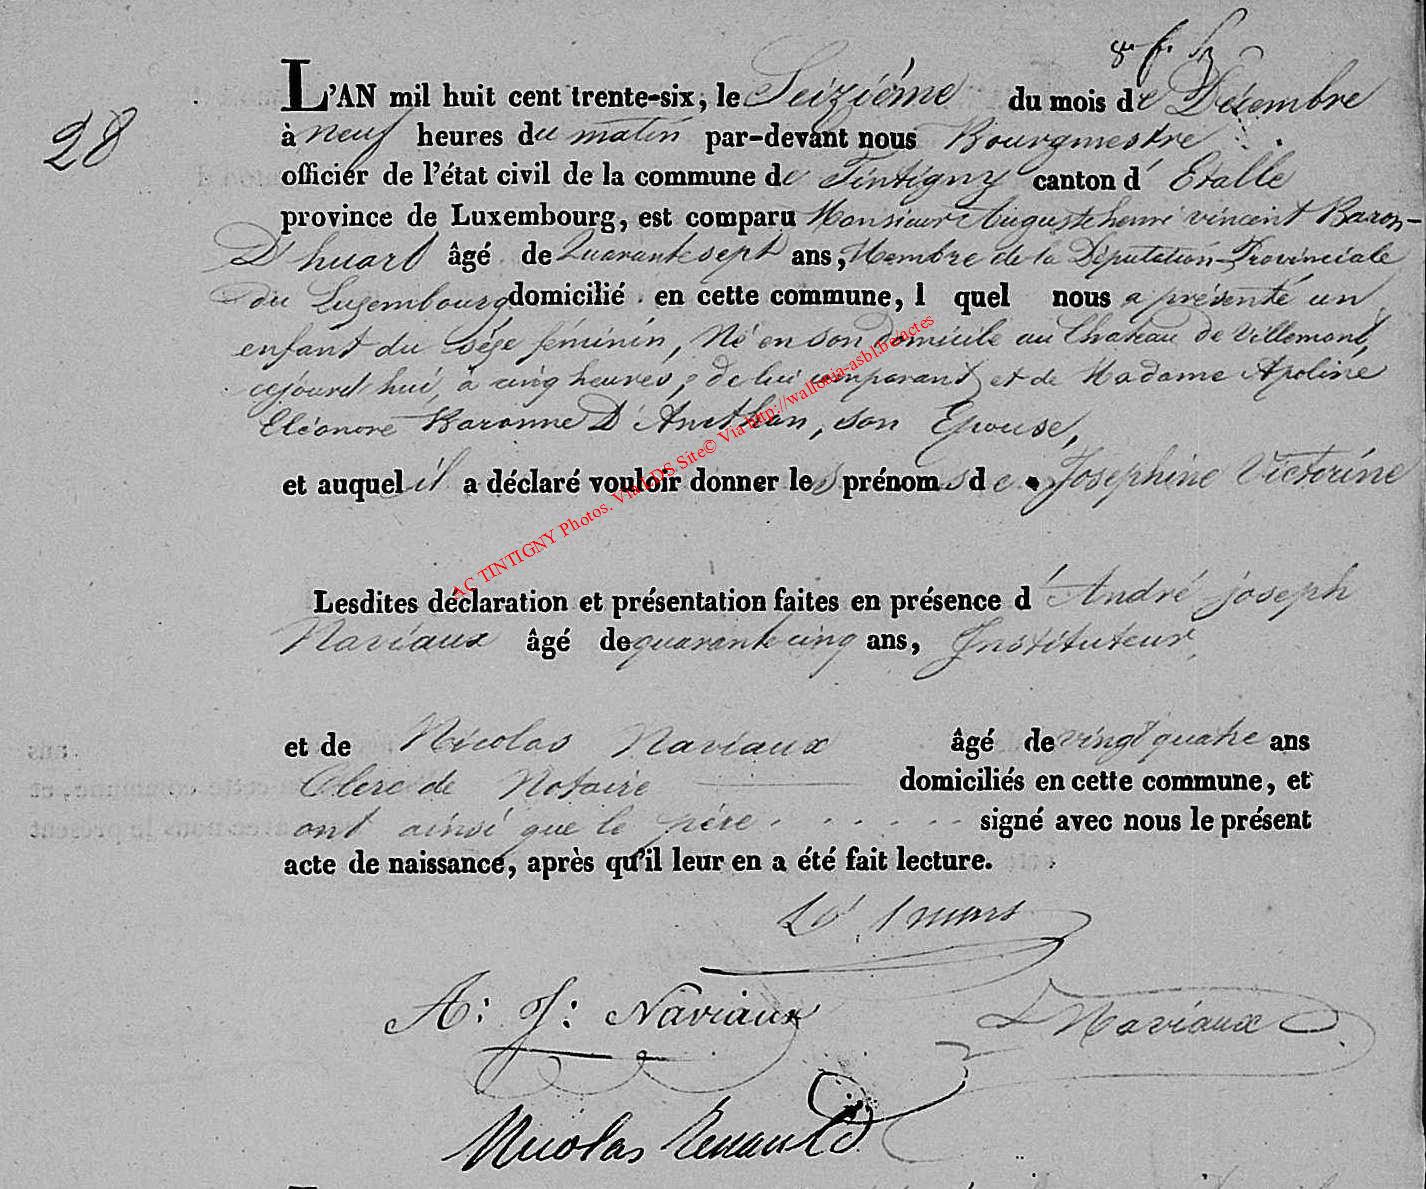 28
L'AN mil huit cent trente-six, le Seiziéme du mois de Décembre
à neuf heures du matin par-devant nous Bourgmestre
officier de l'état civil de la commune de Tintigny canton d' Etalle
province de Luxembourg, est comparu Monsieur Auguste henri vincent Baron
D'huart âgé de Quarante sept ans, Membre de la Députation Provinciale
du Luxembourg domicilié en cette commune, l quel nous a présenté un
enfant du sexe féminin, Né en son domicile au Chateau de Villemont,
cejourd'hui, à cinq heures, de lui comparant et de Madame Apoline
Eléonore Baronne D'Anethan, son Epouse,
et auquel il a déclaré vouloir donner les prénoms de Josephine Victorine
Lesdites déclaration et présentation faites en présence d'André joseph
Naviaux âgé de quarante cinq ans, Instituteur,
et de Nicolas Naviaux âgé de vingt quatre ans
Clerc de Notaire domiciliés en cette commune, et
ont ainsi que le père signé avec nous le présent
acte de naissance, après qu'il leur en a été fait lecture.
A: J: Naviaux
Naviaux
Nicolas Renauld
AC TINTIGNY Photos. Via LDS Site© Via http://wallonia-asbl.be/actes